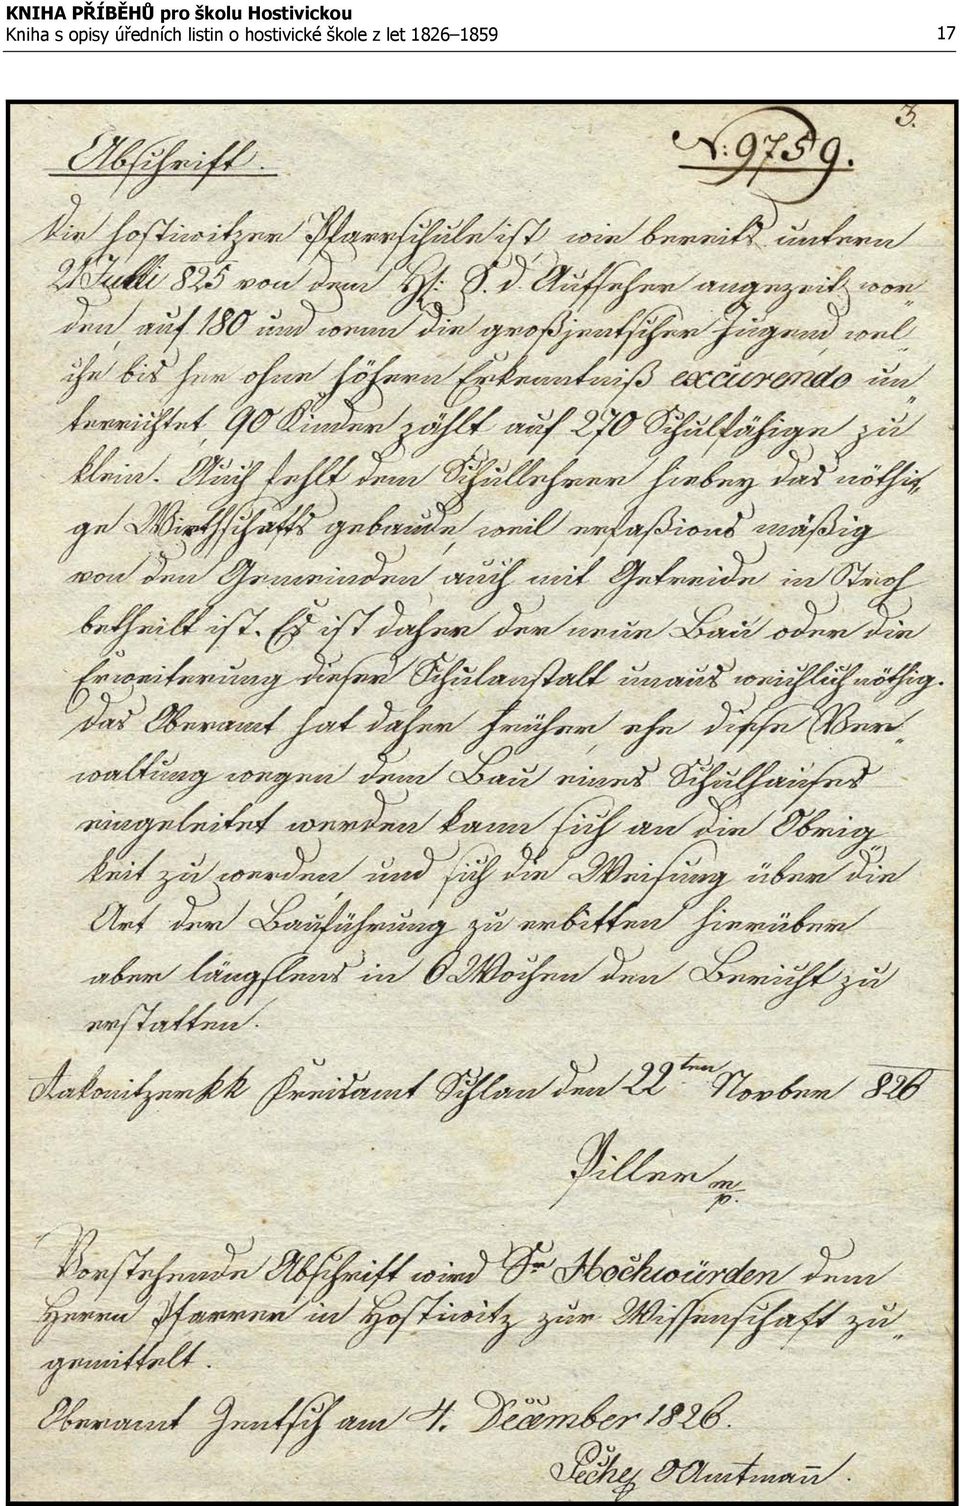 KNIHA PŘÍBĚHŮ pro školu Hostivickou
Kniha s opisy úředních listin o hostivické škole z let 1826–1859 17
3.
Abschrift. N: 9759.
Die hostiwitzer Pfarrschule ist, wie bereits untern
21 Julli 825 von dem H: S. d. Aufseher angezeit wor
den, auf 180 und wenn die großjentscher Jugend, wel„
che bis her ohne höhern Erkenntniß excurendo un„
terrichtet, 90 Kinder zählt, auf 270 Schulfähige zu
klein. Auch fehlt dem Schullehrer hiebey das nöthi„
ge Wirthschafts gebaude, weil erfaßions mäßig
von den Gemeinden auch mit Getreide in Stroh
betheilt ist. Es ist daher der neue Bau oder die
Erweiterung dieser Schulanstalt unaus weichlich nöthig.
Das Oberamt hat daher früher, ehe diesse Ver„
waltung wegen dem Bau eines Schulhauses
eingeleitet werden kann sich an die Obrig
keit zu werden, und sich die Weisung über die
Art der Bauführung zu erbitten hierüber
aber längstens in 6 Wochen den Bericht zu
erstatten.
Rakonitzer kk Kreisamt Schlan den 22ten Novber 826
Piller mp.
Vorstehende Abschrift wird Sr Hochwürden dem
Herrn Pfarrer in Hostiwitz zur Wissenschaft zu„
gemittelt.
Oberamt Jentsch am 4. December 1826.
Pechy OAmtmann.